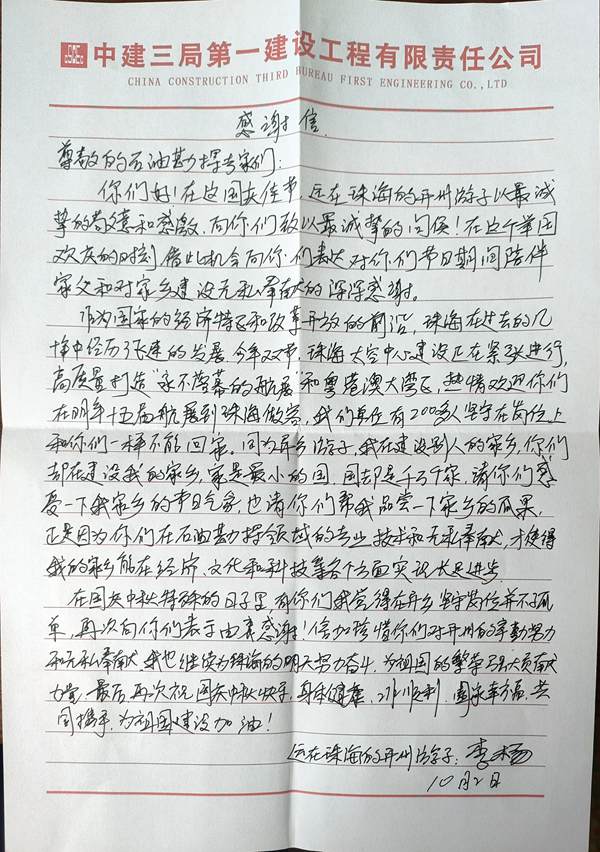 中建三局第一建设工程有限责任公司
CHINA CONSTRUCTION THIRD BUREAU FIRST ENGINEERING CO.,LTD
感谢信
尊敬的石油勘探专家们:
你们好!在这国庆佳节远在珠海的开州游子以最诚
挚的敬意和感激,向你们致以最诚挚的问侯!在这个举国
欢庆的时刻借此机会向你们表达对你们节日期间陪伴
家父和对家乡建设无私奉献的深深感谢。
作为国家的经济特区和改革开放的前沿,珠海在过去的几
十年中经历了快速的发展,今年双节,珠海太空中心建设正在紧张进行,
高质量打造“永不落幕的航展”和粤港澳大湾区,热情欢迎你们
在明年十五届航展到珠海做客,我们单位有2000多人坚守在岗位上
和你们一样不能回家。同为异乡游子,我在建设别人的家乡,你们
却在建设我的家乡,家是最小的国,国却是千万个家,请你们感
受一下我家乡的节日气氛,也请你们帮我品尝一下家乡的瓜果,
正是因为你们在石油勘探领域的专业技术和无私奉献,才使得
我的家乡能在经济、文化和科技等各个方面实现长足进步
在国庆中秋特殊的日子里,有你们我觉得在异乡坚守岗位并不孤
单,再次向你们表示由衷感谢!倍加珍惜你们对开州的辛勤努力
和无私奉献,我也继续为珠海的明天努力奋斗,为祖国的繁荣强大贡献
力量,最后,再次祝国庆中秋快乐,身体健康,工作顺利,阖家幸福,共
同携手,为祖国建设加油!
远在珠海的开州游子:李杨
10月2日